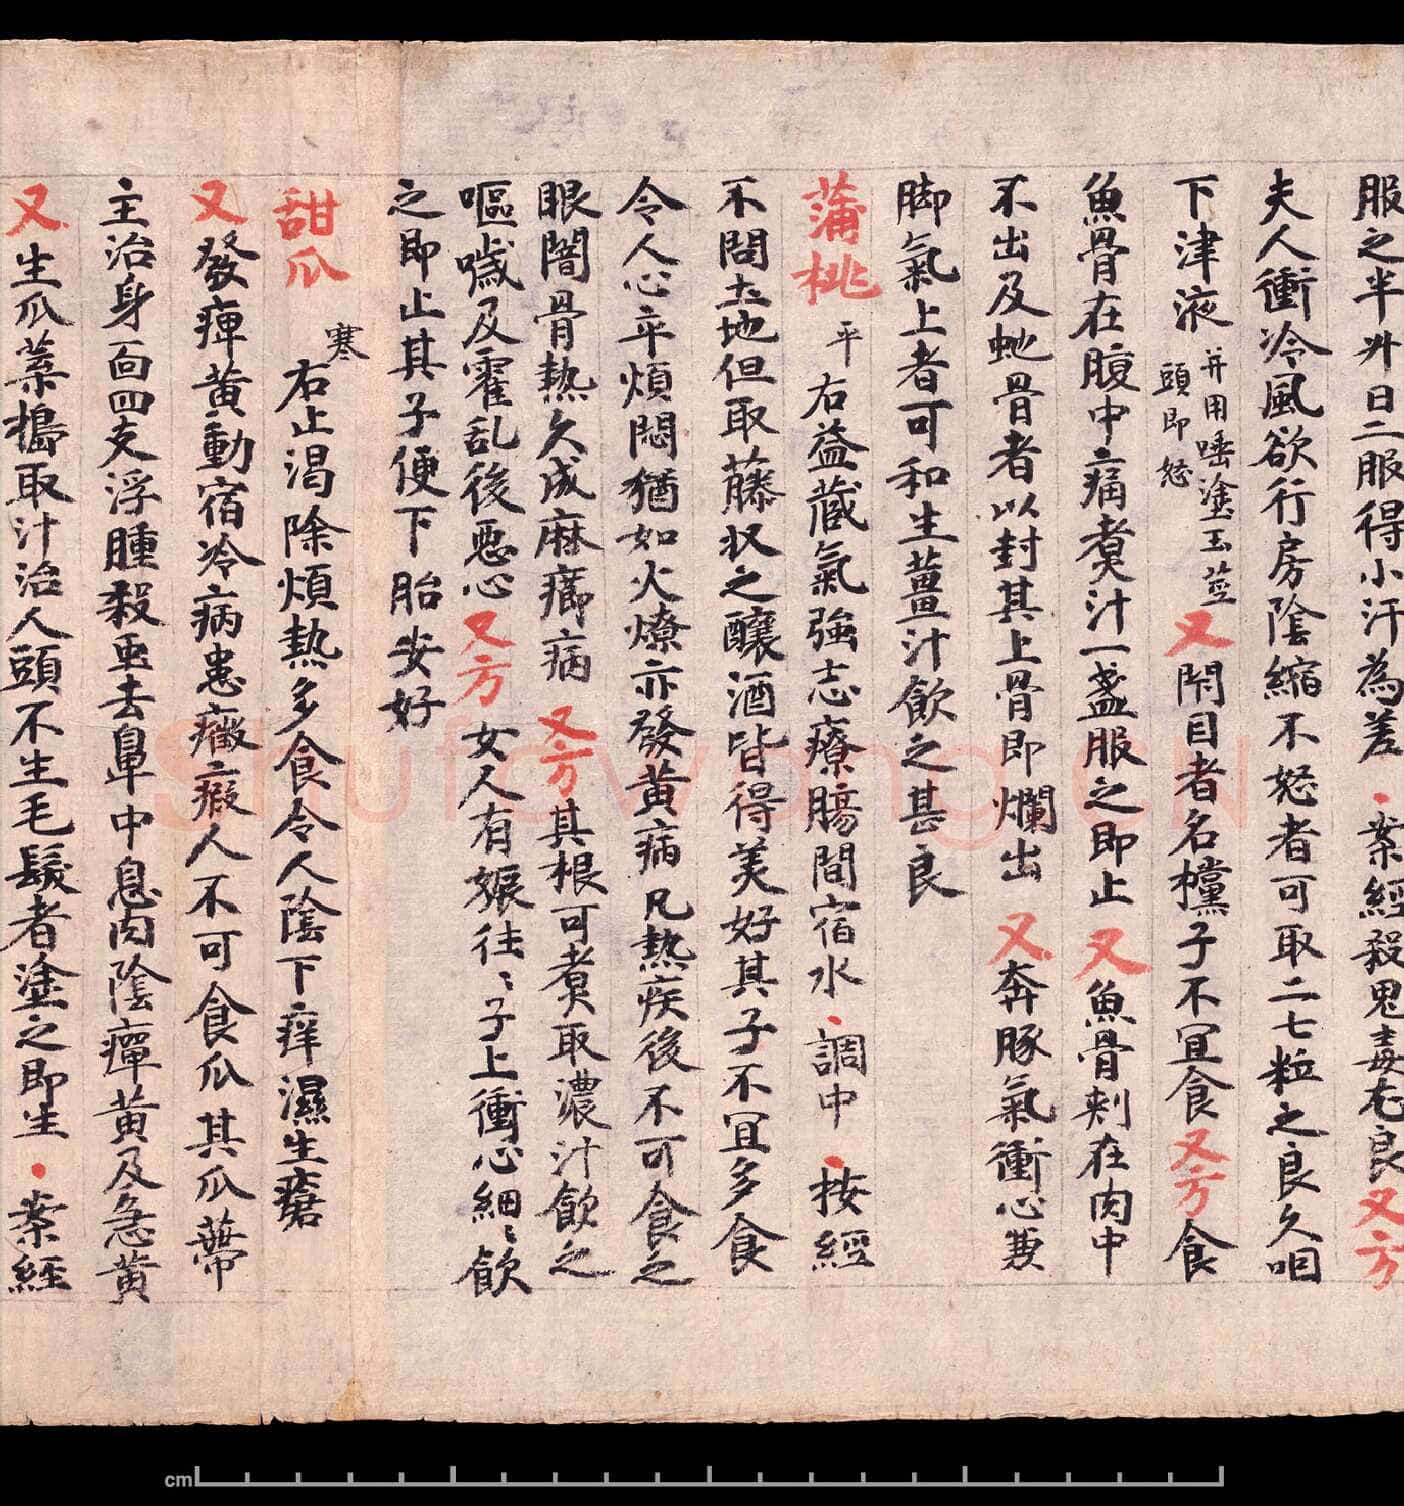 服之半升日二服得小汗為差・案經殺鬼毒尤良又方
夫人衝冷風欲行房陰縮不怒者可取二七粒之良久咽
下津液并用唾塗玉莖頭即怒又閇目者名欓子不宜食又方食
魚骨在腹中痛煑汁一盞服之即止又魚骨刺在肉中
不出及虵骨者以封其上骨即爛出又奔豚氣衝心兼
脚氣上者可和生薑汁飲之甚良
蒲桃平右益藏氣強志療腸間宿水・調中・按經
不問土地但取藤收之釀酒皆得美好其子不宜多食
令人心卒煩悶猶如火燎亦發黃病凡熱疾後不可食之
眼闇骨熱久成麻癤病又方其根可煑取濃汁飲之
嘔噦及霍乱後惡心又方女人有娠往〻子上衝心細〻飲
之即止其子便下胎安好
甜瓜寒右止渴除煩熱多食令人陰下痒濕生瘡
又發痺黃動宿冷病患癥瘕人不可食瓜其瓜蔕
主治身面四支浮腫殺虫去鼻中息肉陰癉黃及急黃
又生瓜葉搗取汁治人頭不生毛髮者塗之即生・案經
cm